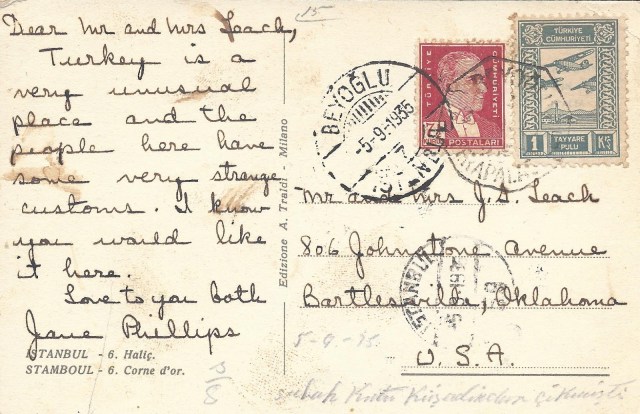 15
Dear Mr and Mrs Leach,
Turkey is a
very unusual
place and the
people here have
some very strange
customs. I know
you would like
it here.
Love to you both
Jane Phillips
ISTANBUL - 6. Haliç.
STAMBOUL - 6. Corne d'or.
Edizione A. Traldi - Milano
BEYOĞLU
-5-9-1935
TÜRKİYE
CÜMHURİYETİ
POSTALARI
TÜRKİYE
CÜMHURİYETİ
1
TAYYARE
PULU
Mr and Mrs J.S. Leach
806 Johnstone Avenue
Bartlesville, Oklahoma
U.S.A.
ISTANBUL
5-9-35.